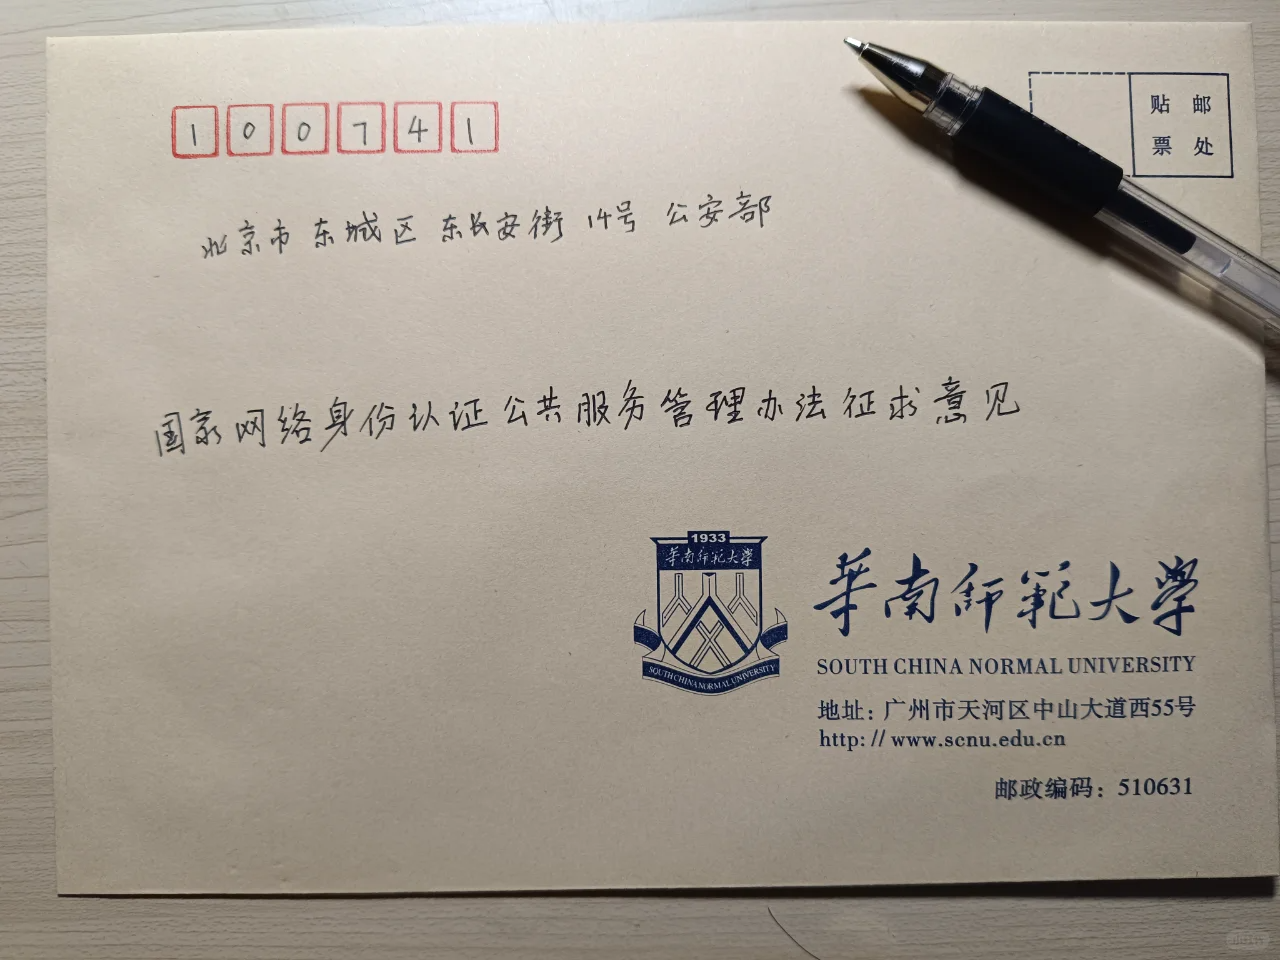 100741
贴 邮
票 处
北京市 东城区 东长安街 14号 公安部
国家网络身份认证公共服务管理办法征求意见
1933
華南師範大學
SOUTH CHINA NORMAL UNIVERSITY
華南師範大學
SOUTH CHINA NORMAL UNIVERSITY
地址：广州市天河区中山大道西55号
http: // www.scnu.edu.cn
邮政编码：510631